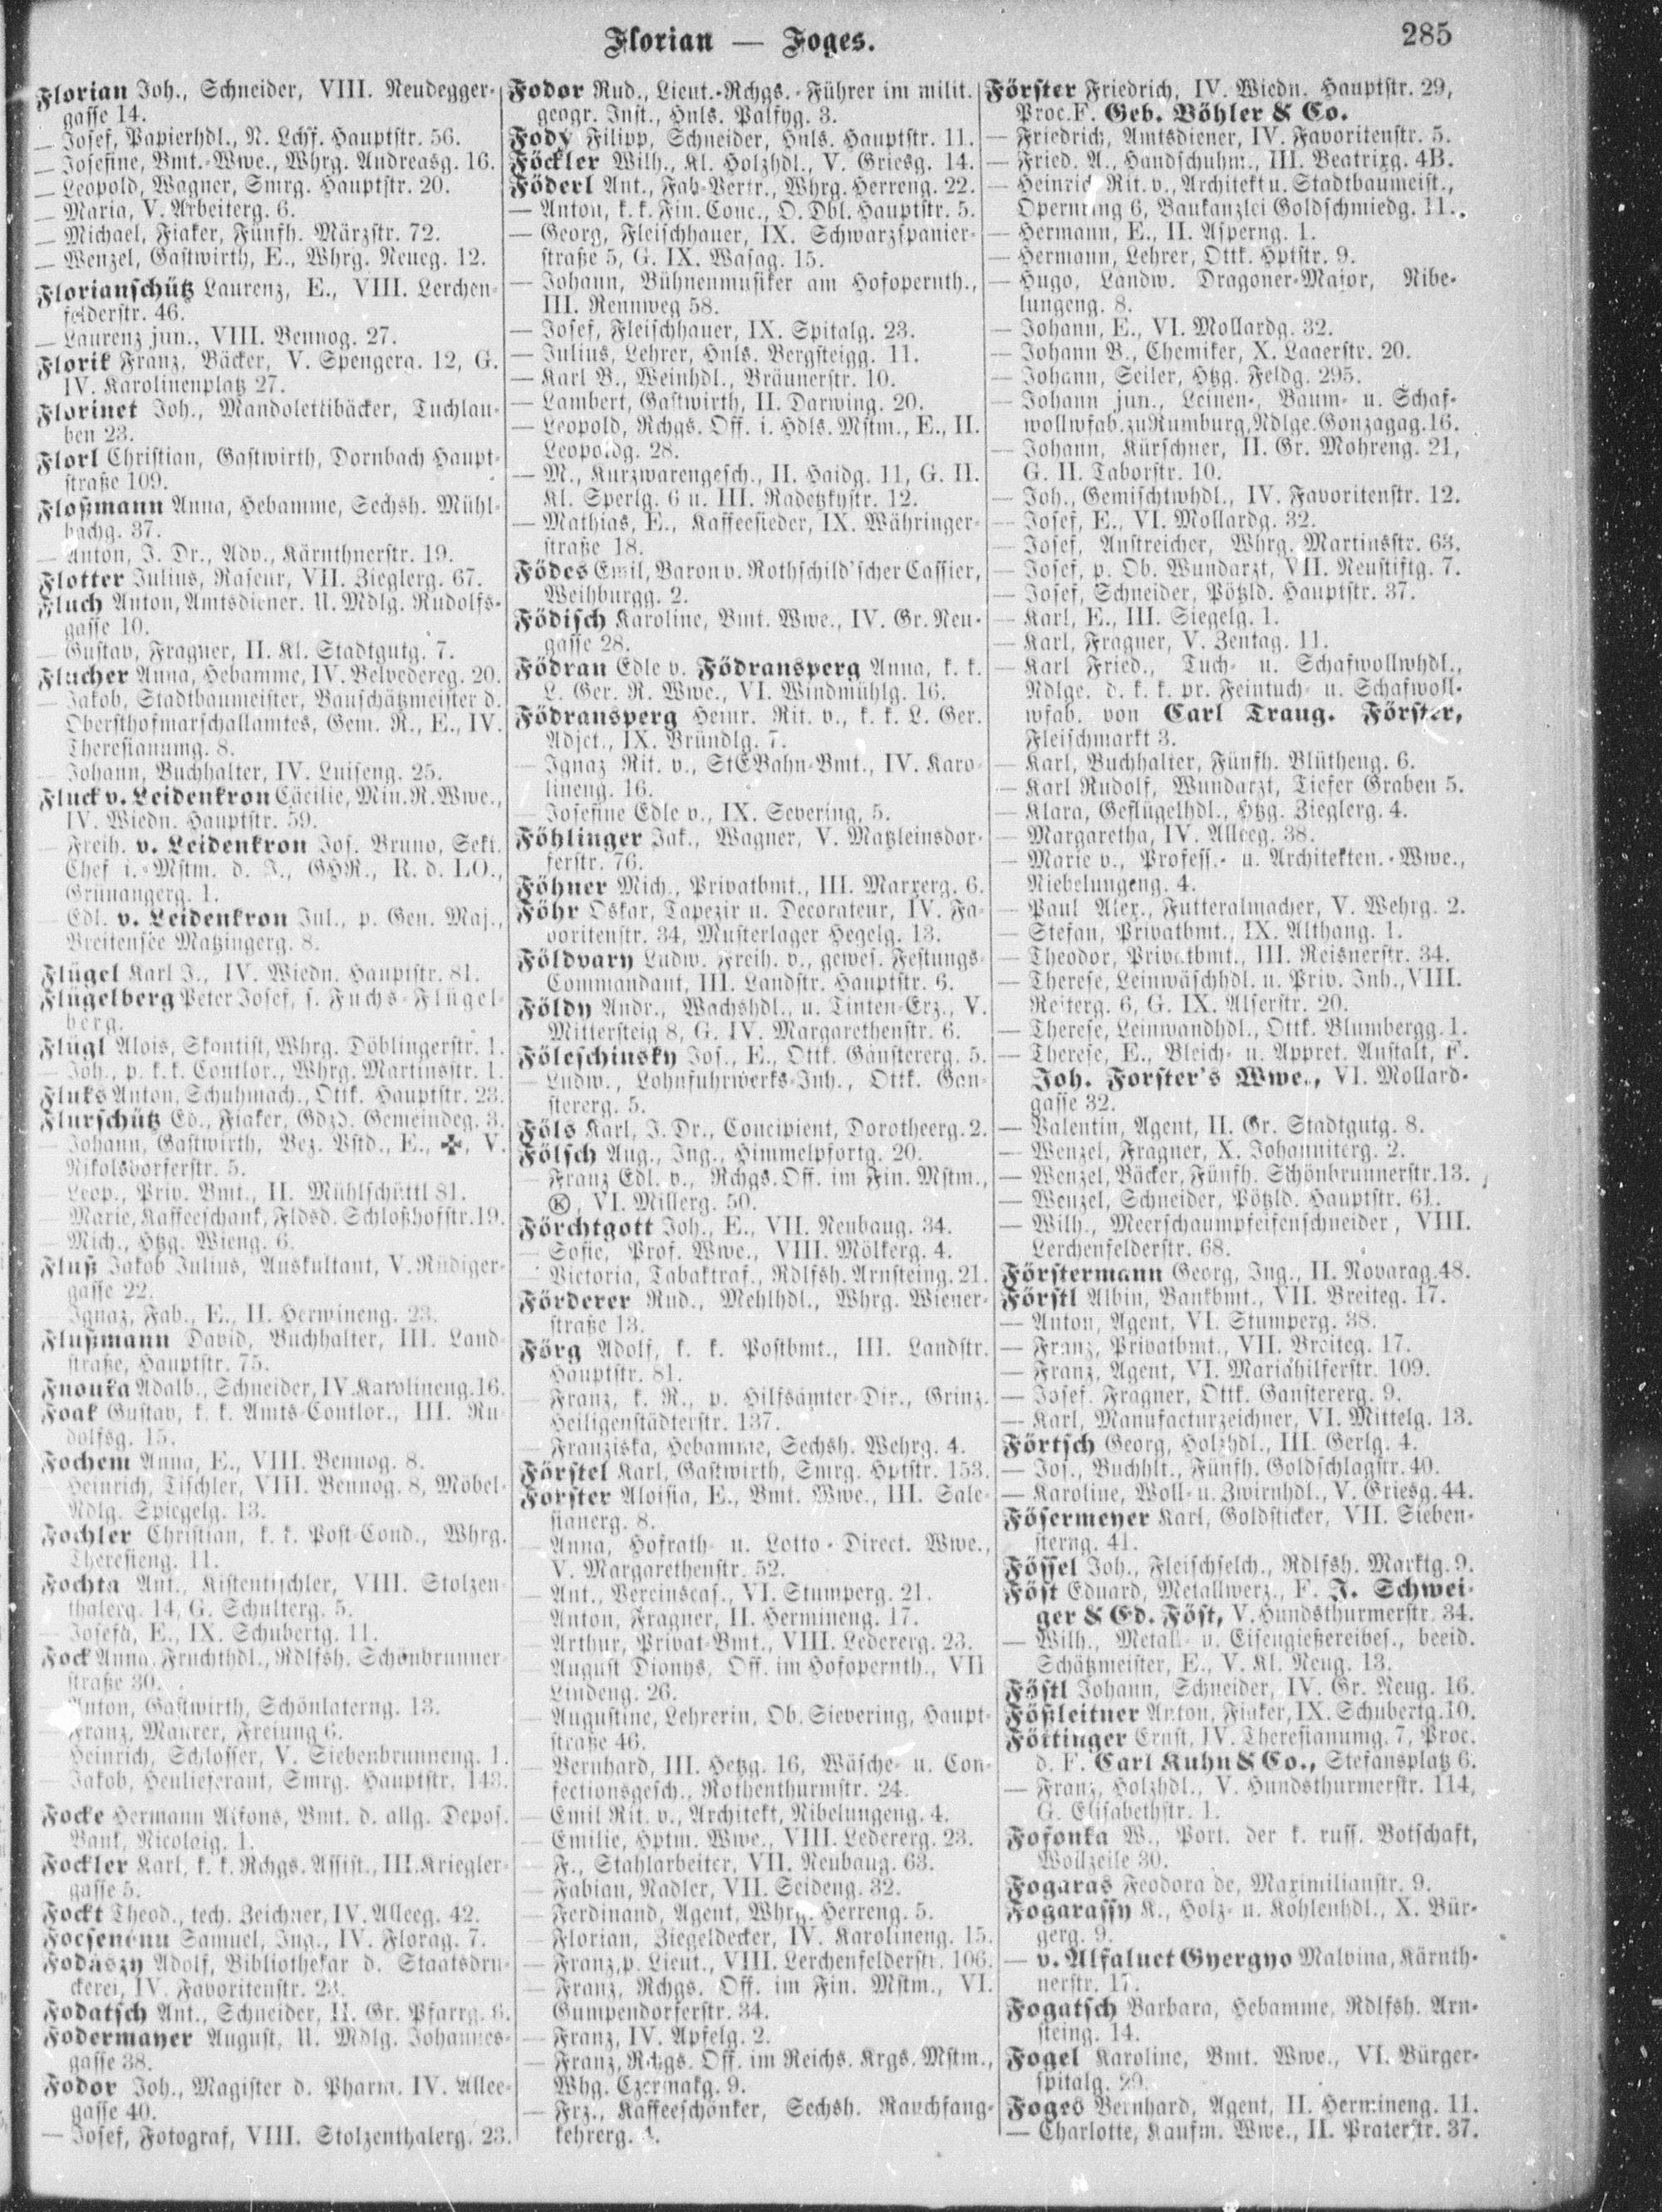 Florian — Foges.
285
Florian Joh., Schneider, VIII. Neudegger-
gasse 14.
— Josef, Papierhdl., N. Lchf. Hauptstr. 56.
— Josefine, Bmt.-Wwe., Whrg. Andreasg. 16.
— Leopold, Wagner, Smrg. Hauptstr. 20.
— Maria, V. Arbeiterg. 6.
— Michael, Fiaker, Fünfh. Märzstr. 72.
— Wenzel, Gastwirth, E., Whrg. Neueg. 12.
Florianschütz Laurenz, E., VIII. Lerchen-
felderstr. 46.
— Laurenz jun., VIII. Bennog. 27.
Florik Franz, Bäcker, V. Spengerg. 12, G.
IV. Karolinenplatz 27.
Florinet Joh., Mandolettibäcker, Tuchlau-
ben 23.
Florl Christian, Gastwirth, Dornbach Haupt-
straße 109.
Floßmann Anna, Hebamme, Sechsh. Mühl-
bachg. 37.
— Anton, J. Dr., Adv., Kärnthnerstr. 19.
Flotter Julius, Raseur, VII. Zieglerg. 67.
Fluch Anton, Amtsdiener. U. Mdlg. Rudolfs-
gasse 10.
— Gustav, Fragner, II. Kl. Stadtgutg. 7.
Flucher Anna, Hebamme, IV. Belvedereg. 20.
— Jakob, Stadtbaumeister, Bauschätzmeister d.
Obersthofmarschallamtes, Gem. R., E., IV.
Theresianumg. 8.
— Johann, Buchhalter, IV. Luiseng. 25.
Fluck v. Leidenkron Cäcilie, Min. R. Wwe.,
IV. Wiedn. Hauptstr. 59.
— Freih. v. Leidenkron Jos. Bruno, Sekt.
Chef i. Mstm. d. J., GHR., R. d. LO.,
Grünangerg. 1.
— Edl. v. Leidenkron Jul., p. Gen. Maj.,
Breitensee Matzingerg. 8.
Flügel Karl J., IV. Wiedn. Hauptstr. 81.
Flügelberg Peter Josef, s. Fuchs-Flügel-
berg.
Flügl Alois, Skontist, Whrg. Döblingerstr. 1.
— Joh., p. k. k. Contlor., Whrg. Martinsstr. 1.
Fluks Anton, Schuhmach., Ottk. Hauptstr. 23.
Flurschütz Ed., Fiaker, Gdzd. Gemeindeg. 3.
— Johann, Gastwirth, Bez. Vstd., E., ✠, V.
Nikolsdorferstr. 5.
— Leop., Priv. Bmt., II. Mühlschüttl 81.
— Marie, Kaffeeschank, Fldsd. Schloßhofstr. 19.
— Mich., Htzg. Wieng. 6.
Fluß Jakob Julius, Auskultant, V. Rüdiger-
gasse 22.
— Ignaz, Fab., E., II. Hermineng. 23.
Flußmann David, Buchhalter, III. Land-
straße, Hauptstr. 75.
Fnouka Adalb., Schneider, IV. Karolineng. 16.
Foak Gustav, k. k. Amts-Contlor., III. Ru-
dolfsg. 15.
Fochem Anna, E., VIII. Bennog. 8.
— Heinrich, Tischler, VIII. Bennog. 8, Möbel-
Ndlg. Spiegelg. 13.
Fochler Christian, k. k. Post-Cond., Whrg.
Theresieng. 11.
Fochta Ant., Kistentischler, VIII. Stolzen-
thalerg. 14, G. Schulterg. 5.
— Josefa, E., IX. Schubertg. 11.
Fock Anna, Fruchthdl., Rdlfsh. Schönbrunner-
straße 30.
— Anton, Gastwirth, Schönlaterng. 13.
— Franz, Maurer, Freiung 6.
— Heinrich, Schlosser, V. Siebenbrunneng. 1.
— Jakob, Heulieferant, Smrg. Hauptstr. 143.
Focke Hermann Alfons, Bmt. d. allg. Depos.
Bank, Nicolaig. 1.
Fockler Karl, k. k. Rchgs. Assist., III. Kriegler-
gasse 5.
Fockt Theod., tech. Zeichner, IV. Alleeg. 42.
Focsenénu Samuel, Ing., IV. Florag. 7.
Fodászy Adolf, Bibliothekar d. Staatsdru-
ckerei, IV. Favoritenstr.
Fodatsch Ant., Schneider, II. Gr. Pfarrg. 8.
Fodermayer August, U. Mdlg. Johannes-
gasse 38.
Fodor Joh., Magister d. Pharm. IV. Allee-
gasse 40.
— Josef, Fotograf, VIII. Stolzenthalerg. 23.
Fodor Rud., Lieut.-Rchgs.-Führer im milit.
geogr. Inst., Hnls. Palffyg. 3.
Fody Filipp, Schneider, Hnls. Hauptstr. 11.
Föckler Wilh., Kl. Holzhdl., V. Griesg. 14.
Föderl Ant., Fab-Vertr., Whrg. Herreng. 22.
— Anton, k. k. Fin. Conc., O. Dbl. Hauptstr. 5.
— Georg, Fleischhauer, IX. Schwarzspanier-
straße 5, G. IX. Wasag. 15.
— Johann, Bühnenmusiker am Hofopernth.,
III. Rennweg 58.
— Josef, Fleischhauer, IX. Spitalg. 23.
— Julius, Lehrer, Hnls. Bergsteigg. 11.
— Karl B., Weinhdl., Bräunerstr. 10.
— Lambert, Gastwirth, II. Darwing. 20.
— Leopold, Rchgs. Off. i. Hdls. Mstm., E., II.
Leopoldg. 28.
— M., Kurzwarengesch., II. Haidg. 11, G. II.
Kl. Sperlg. 6 u. III. Radetzkystr. 12.
— Mathias, E., Kaffeesieder, IX. Währinger-
straße 18.
Födes Emil, Baron v. Rothschild'scher Cassier,
Weihburgg. 2.
Födisch Karoline, Bmt. Wwe., IV. Gr. Neu-
gasse 28.
Födran Edle v. Födransperg Anna, k. k.
L. Ger. R. Wwe., VI. Windmühlg. 16.
Födransperg Heinr. Rit. v., k. k. L. Ger.
Adjct., IX. Bründlg. 7.
— Ignaz Rit. v., StEBahn-Bmt., IV. Karo-
lineng. 16.
— Josefine Edle v., IX. Severing. 5.
Föhlinger Jak., Wagner, V. Matzleinsdor-
ferstr. 76.
Föhner Mich., Privatbmt., III. Marxerg. 6.
Föhr Oskar, Tapezir u. Decorateur, IV. Fa-
voritenstr. 34, Musterlager Hegelg. 13.
Földvary Ludw. Freih. v., gewes. Festungs-
Commandant, III. Landstr. Hauptstr. 6.
Földy Andr., Wachshdl., u. Tinten-Erz., V.
Mittersteig 8, G. IV. Margarethenstr. 6.
Föleschinsky Jos., E., Ottk. Gänstererg. 5.
— Ludw., Lohnfuhrwerks-Inh., Ottk. Gan-
stererg. 5.
Föls Karl, J. Dr., Concipient, Dorotheerg. 2.
Fölsch Aug., Ing., Himmelpfortg. 20.
— Franz Edl. v., Rchgs. Off. im Fin. Mstm.,
Ⓚ, VI. Millerg. 50.
Förchtgott Joh., E., VII. Neubaug. 34.
— Sofie, Prof. Wwe., VIII. Mölkerg. 4.
— Victoria, Tabaktraf., Rdlfsh. Arnsteing. 21.
Förderer Rud., Mehlhdl., Whrg. Wiener-
straße 13.
Förg Adolf, k. k. Postbmt., III. Landstr.
Hauptstr. 81.
— Franz, k. R., p. Hilfsämter-Dir., Grinz.
Heiligenstädterstr. 137.
— Franziska, Hebamme, Sechsh. Wehrg. 4.
Förstel Karl, Gastwirth, Smrg. Hptstr. 153.
Förster Aloisia, E., Bmt. Wwe., III. Sale-
sianerg. 8.
— Anna, Hofrath- u. Lotto-Direct. Wwe.,
V. Margarethenstr. 52.
— Ant., Vereinscas., VI. Stumperg. 21.
— Anton, Fragner, II. Hermineng. 17.
— Arthur, Privat-Bmt., VIII. Ledererg. 23.
— August Dionys, Off. im Hofopernth., VII
Lindeng. 26.
— Augustine, Lehrerin, Ob. Sievering, Haupt-
straße 46.
— Bernhard, III. Hetzg. 16, Wäsche- u. Con-
fectionsgesch., Rothenthurmstr. 24.
— Emil Rit. v., Architekt, Nibelungeng. 4.
— Emilie, Hptm. Wwe., VIII. Ledererg. 23.
— F., Stahlarbeiter, VII. Neubaug. 63.
— Fabian, Nadler, VII. Seideng. 32.
— Ferdinand, Agent, Whrg. Herreng. 5.
— Florian, Ziegeldecker, IV. Karolineng. 15.
— Franz, p. Lieut., VIII. Lerchenfelderstr. 106.
— Franz, Rchgs. Off. im Fin. Mstm., VI.
Gumpendorferstr. 34.
— Franz, IV. Apfelg. 2.
— Franz, Rchgs. Off. im Reichs. Krgs. Mstm.,
Whg. Czermakg. 9.
— Frz., Kaffeeschänker, Sechsh. Rauchfang-
kehrerg.
Förster Friedrich, IV. Wiedn. Hauptstr. 29,
Proc. F. Geb. Böhler & Co.
— Friedrich, Amtsdiener, IV. Favoritenstr. 5.
— Fried. A., Handschuhm., III. Beatrixg. 4B.
— Heinrich Rit. v., Architekt u. Stadtbaumeist.,
Opernring 6, Baukanzlei Goldschmiedg. 11.
— Hermann, E., II. Asperng. 1.
— Hermann, Lehrer, Ottk. Hptstr. 9.
— Hugo, Landw. Dragoner-Major, Nibe-
lungeng. 8.
— Johann, E., VI. Mollardg. 32.
— Johann B., Chemiker, X. Lagerstr. 20.
— Johann, Seiler, Htzg. Feldg. 295.
— Johann jun., Leinen-, Baum- u. Schaf-
wollwfab. zu Rumburg, Ndlge. Gonzagag. 16.
— Johann, Kürschner, II. Gr. Mohreng. 21,
G. II. Taborstr. 10.
— Joh., Gemischtwhdl., IV. Favoritenstr. 12.
— Josef, E., VI. Mollardg. 32.
— Josef, Anstreicher, Whrg. Martinsstr. 63.
— Josef, p. Ob. Wundarzt, VII. Neustiftg. 7.
— Josef, Schneider, Pötzld. Hauptstr. 37.
— Karl, E., III. Siegelg. 1.
— Karl, Fragner, V. Zentag. 11.
— Karl Fried., Tuch- u. Schafwollwhdl.,
Ndlge. d. k. k. pr. Feintuch- u. Schafwoll-
wfab. von Carl Traug. Förster,
Fleischmarkt 3.
— Karl, Buchhalter, Fünfh. Blütheng. 6.
— Karl Rudolf, Wundarzt, Tiefer Graben 5.
— Klara, Geflügelhdl., Htzg. Zieglerg. 4.
— Margaretha, IV. Alleeg. 38.
— Marie v., Profess.- u. Architekten.-Wwe.,
Niebelungeng. 4.
— Paul Alex., Futteralmacher, V. Wehrg. 2.
— Stefan, Privatbmt., IX. Althang. 1.
— Theodor, Privatbmt., III. Reisnerstr. 34.
— Therese, Leinwäschhdl. u. Priv. Inh., VIII.
Reiterg. 6, G. IX. Alserstr. 20.
— Therese, Leinwandhdl., Ottk. Blumbergg. 1.
— Therese, E., Bleich- u. Appret. Anstalt, F.
Joh. Forster's Wwe., VI. Mollard-
gasse 32.
— Valentin, Agent, II. Gr. Stadtgutg. 8.
— Wenzel, Fragner, X. Johanniterg. 2.
— Wenzel, Bäcker, Fünfh. Schönbrunnerstr. 13.
— Wenzel, Schneider, Pötzld. Hauptstr. 61.
— Wilh., Meerschaumpfeifenschneider, VIII.
Lerchenfelderstr. 68.
Förstermann Georg, Ing., II. Novarag. 48.
Förstl Albin, Bankbmt., VII. Breiteg. 17.
— Anton, Agent, VI. Stumperg. 38.
— Franz, Privatbmt., VII. Breiteg. 17.
— Franz, Agent, VI. Mariahilferstr. 109.
— Josef, Fragner, Ottk. Ganstererg. 9.
— Karl, Manufacturzeichner, VI. Mittelg. 13.
Förtsch Georg, Holzhdl., III. Gerlg. 4.
— Jos., Buchhlt., Fünfh. Goldschlagstr. 40.
— Karoline, Woll- u. Zwirnhdl., V. Griesg. 44.
Fösermeyer Karl, Goldsticker, VII. Sieben-
sterng. 41.
Fössel Joh., Fleischselch., Rdlfsh. Marktg. 9.
Föst Eduard, Metallwerz., F. J. Schwei-
ger & Ed. Föst, V. Hundsthurmerstr. 34.
— Wilh., Metall- u. Eisengießereibes., beeid.
Schätzmeister, E., V. Kl. Neug. 13.
Föstl Johann, Schneider, IV. Gr. Neug. 16.
Fößleitner Anton, Fiaker, IX. Schubertg. 10.
Föttinger Ernst, IV. Theresianumg. 7, Proc.
d. F. Carl Kuhn & Co., Stefansplatz 6.
— Franz, Holzhdl., V. Hundsthurmerstr. 114,
G. Elisabethstr. 1.
Fofonka W., Port. der k. russ. Botschaft,
Wollzeile 30.
Fogaras Feodora de, Maximilianstr. 9.
Fogarassy K., Holz- u. Kohlenhdl., X. Bür-
gerg. 9.
— v. Alfaluet Gyergyo Malvina, Kärnth-
nerstr. 17.
Fogatsch Barbara, Hebamme, Rdlfsh. Arn-
steing. 14.
Fogel Karoline, Bmt. Wwe., VI. Bürger-
spitalg. 29.
Foges Bernhard, Agent, II. Hermineng. 11.
— Charlotte, Kaufm. Wwe., II. Praterstr. 37.